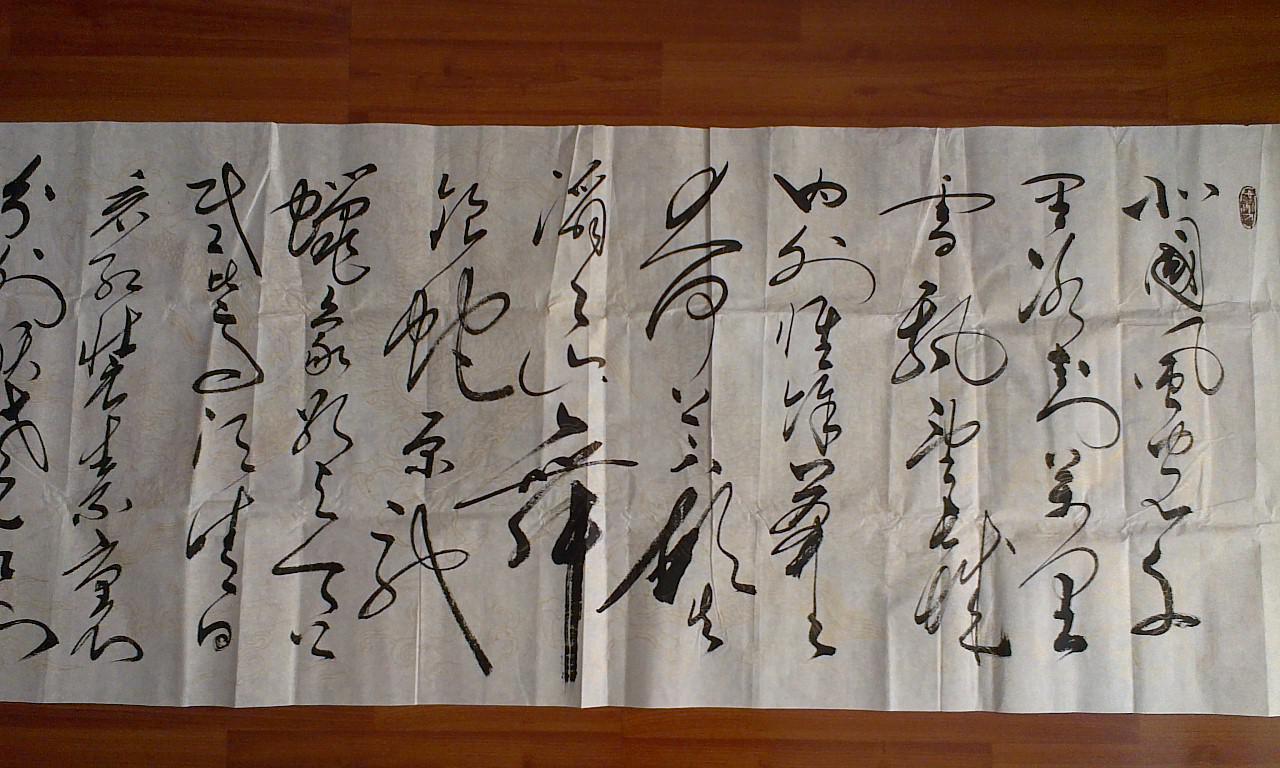 北國風光千
里冰封萬里
雪飄望長城
内外惟餘莽々
大河上下頓失
滔々山舞
銀蛇原馳
蠟象欲與天公
試比高須晴日
看紅裝素裹
分外妖嬈